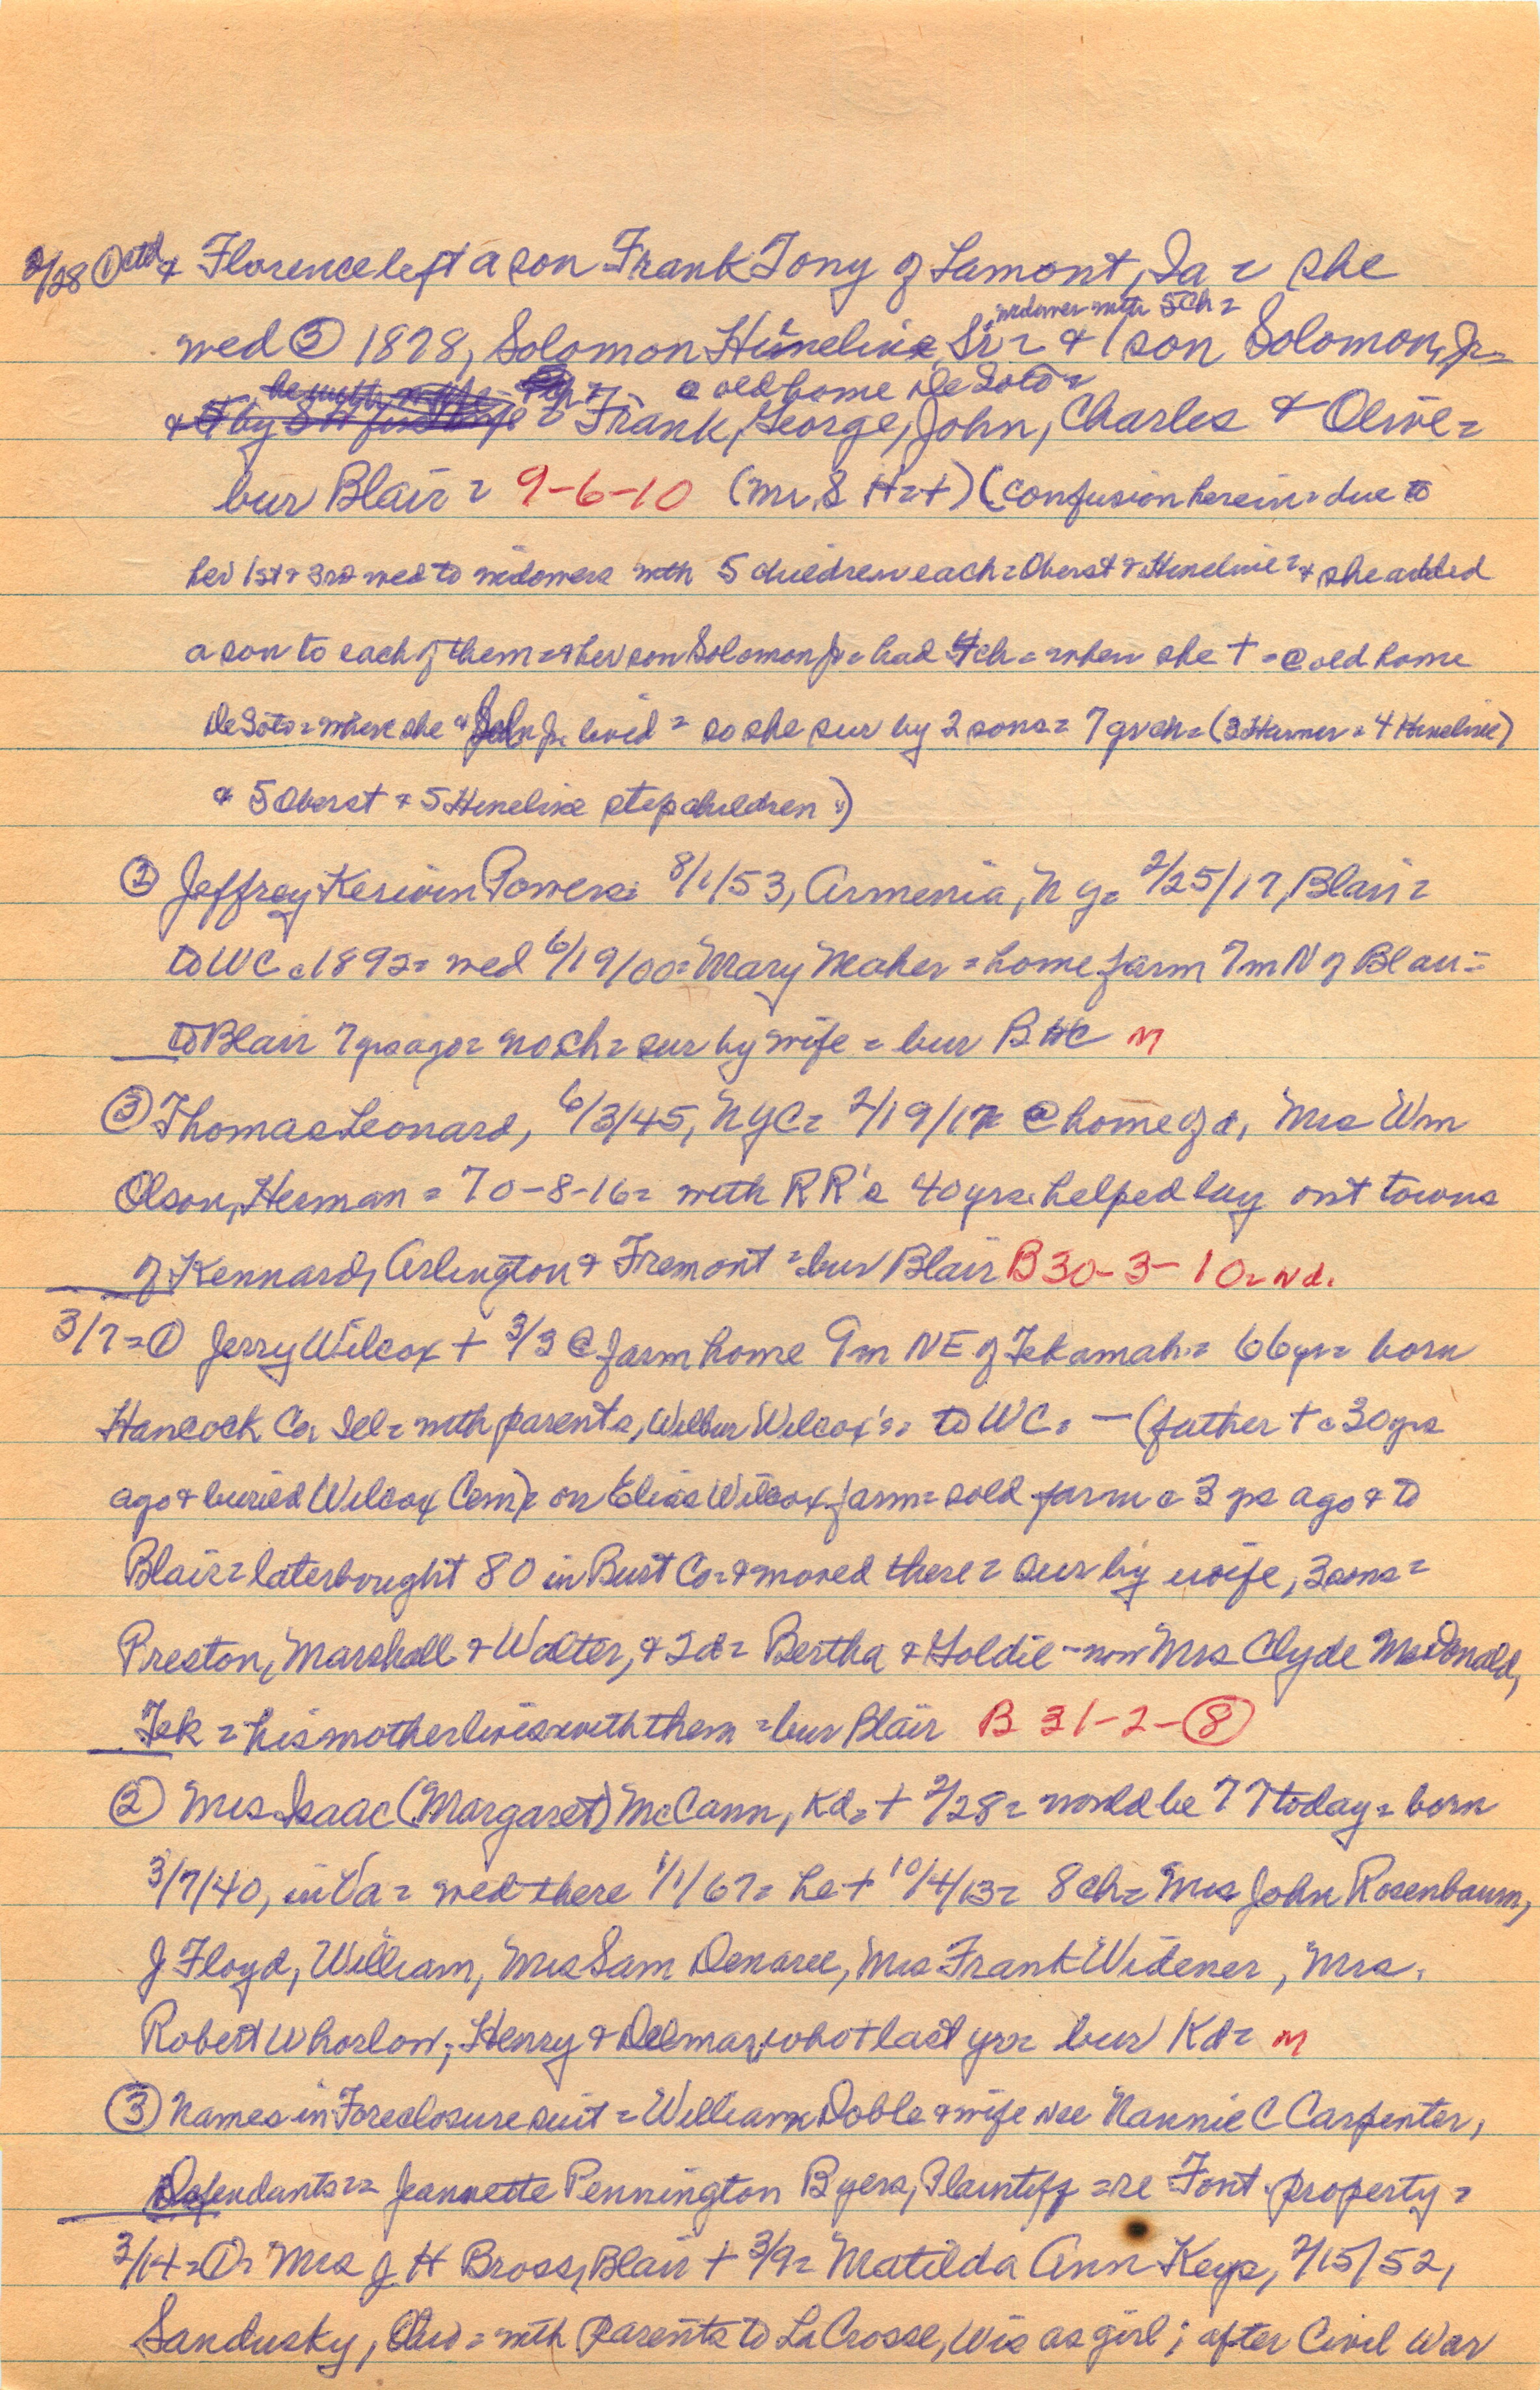 2/28 ① ctd & Florence left a son Frank Tony of Lamont, Ia = she
widower with 5 Ch =
wed ③ 1878, Solomon Hineline, Sr = & 1 son Solomon, Jr =
@ old home De Soto =
Frank, George, John, Charles & Olive =
bur Blair = 9-6-10 (Mr. S H = +) (confusion herein = due to
her 1st & 3rd wed to widowers with 5 children each = Oberst & Hineline = & she added
a son to each of them = & her son Solomon Jr = had 4 ch = when she + = @ old home
DeSoto = where she & Jr lived = so she sur by 2 sons = 7 grch = (3 Harmer = 4 Hineline)
& 5 Oberst & 5 Hineline stepchildren =)
② Jeffrey Kerivin Powers = 8/1/53, Armenia, N Y = 2/25/17, Blair =
to WC c 1892 = wed 6/19/00 = Mary Maher = home farm 7m N of Blair =
to Blair 7 yrs ago = no ch = sur by wife = bur B HC M
③ Thomas Leonard, 6/3/45, NYC = 2/19/17 @ home of d, Mrs Wm
Olson, Herman = 70-8-16 = with RR's 40 yrs = helped lay out towns
of Kennard, Arlington & Fremont = bur Blair B 30-3-10 = Nd.
3/7 = ① Jerry Wilcox + 3/3 @ farm home 9m NE of Tekamah = 66 yrs = born
Hancock Co, Ill = with parents, Wilbur Wilcox's = to WC = — (father + c 30 yrs
ago & buried Wilcox Cem) = on Elias Wilcox farm = sold farm c 3 yrs ago & to
Blair = later bought 80 in Burt Co = & moved there = sur by wife, 3 sons =
Preston, Marshall & Walter, & 2 d = Bertha & Goldie - now Mrs Clyde McDonald,
Tek = his mother lives with them = bur Blair B 31-2-⑧
② Mrs Isaac (Margaret) McCann, Kd = + 2/28 = would be 77 today = born
3/7/40, in Va = wed there 1/1/67 = he + 10/4/13 = 8 ch = Mrs John Rosenbaum,
J Floyd, William, Mrs Sam Denaree, Mrs Frank Widener, Mrs.
Robert Whorlow, Henry & Delmar, who + last yr = bur Kd = M
③ Names in Foreclosure suit = William Doble & wife nee Nannie C Carpenter,
Defendants = = Jeannette Pennington Byers, Plaintiff = re Font. property =
3/14 = ① = Mrs J H Bross, Blair + 3/9 = Matilda Ann Keys, 2/15/52,
Sandusky, Ohio = with parents to LaCrosse, Wis as girl; after Civil War